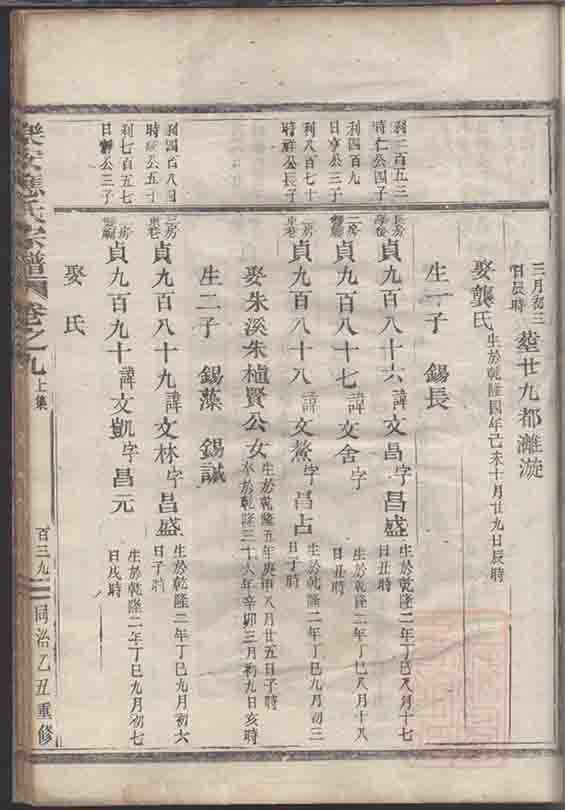 三月初三
日辰時
塟廿九都濉漩
娶龔氏
生於乾隆四年己未十月廿九日辰時
生一子　錫長
利二百五三
時仁公四子
長房
學後
貞九百八十六諱文昌字昌盛
生於乾隆二年丁巳八月十七
日丑時
利四百九
日亨公三子
二房
貞九百八十七諱文舍字
生於乾隆二年丁巳八月十八
日丑時
利八百七十
時祥公長子
二房
東巷
貞九百八十八諱文鰲字昌占
生於乾隆二年丁巳九月初三
日丁時
娶朱溪朱植賢公女
生於乾隆五年庚申八月廿五日子時
卒於乾隆三十六年辛卯三月初九日亥時
生二子　錫藻　錫誠
利四百八日
公五子
二房
東巷
貞九百八十九諱文林字昌盛
生於乾隆二年丁巳九月初六
日子時
利七百五七
公三子
二房
貞九百九十諱文凱字昌元
生於乾隆二年丁巳九月初七
日戌時
娶　氏
樂安應氏宗譜　卷之九上集　百三九　同治乙丑重修